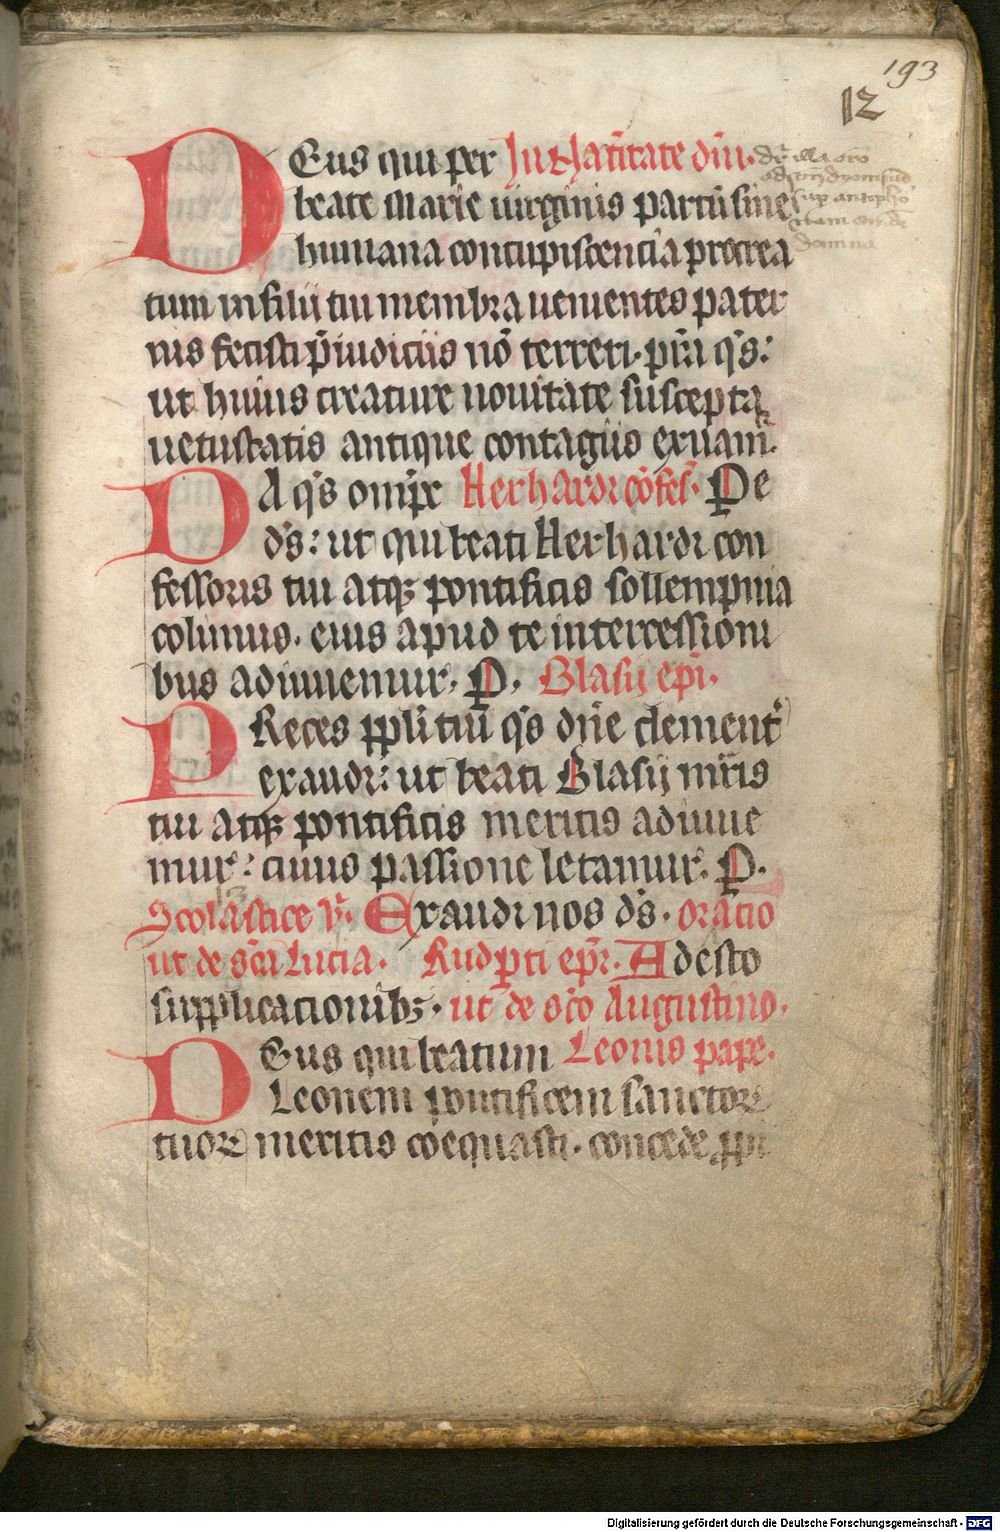 193
12
DEus qui per In Natīītate dn̄i.
beate Marie uirginis partū sine
humana concupiscencia procrea
tum in filii tui membra uenientes pater
nis fecisti p̄iudiciis nō terreri. pr̄a qs̄:
ut huius creature nouitate suscepta
uetustatis antique contagiis exuam̄.
DA qs̄ om̄ps Herhardi cōfes̄. P De
ds̄: ut qui beati Herhardi con
fessoris tui atqꝫ pontificis sollempnia
colimus. eius apud te intercessioni
bus adiuuemur. P. Blasij ep̄i.
PReces ppl̄i tui qs̄ dn̄e clement̄
exaudi: ut beati Blasij mr̄is
tui atqꝫ pontificis meritis adiuue
mur: cuius passione letamur. P.
13
Scolastice v̄. Exaudi nos ds̄. oratio
ut de sc̄a Lucia. Rudp̄ti ep̄i. Adesto
supplicacionibꝫ. ut de sc̄o Augustino.
DEus qui beatum Leonis pape.
Leonem pontificem sanctoꝝ
tuoꝝ meritis coequasti. concede ꝓpi
Digitalisierung gefördert durch die Deutsche Forschungsgemeinschaft - DFG